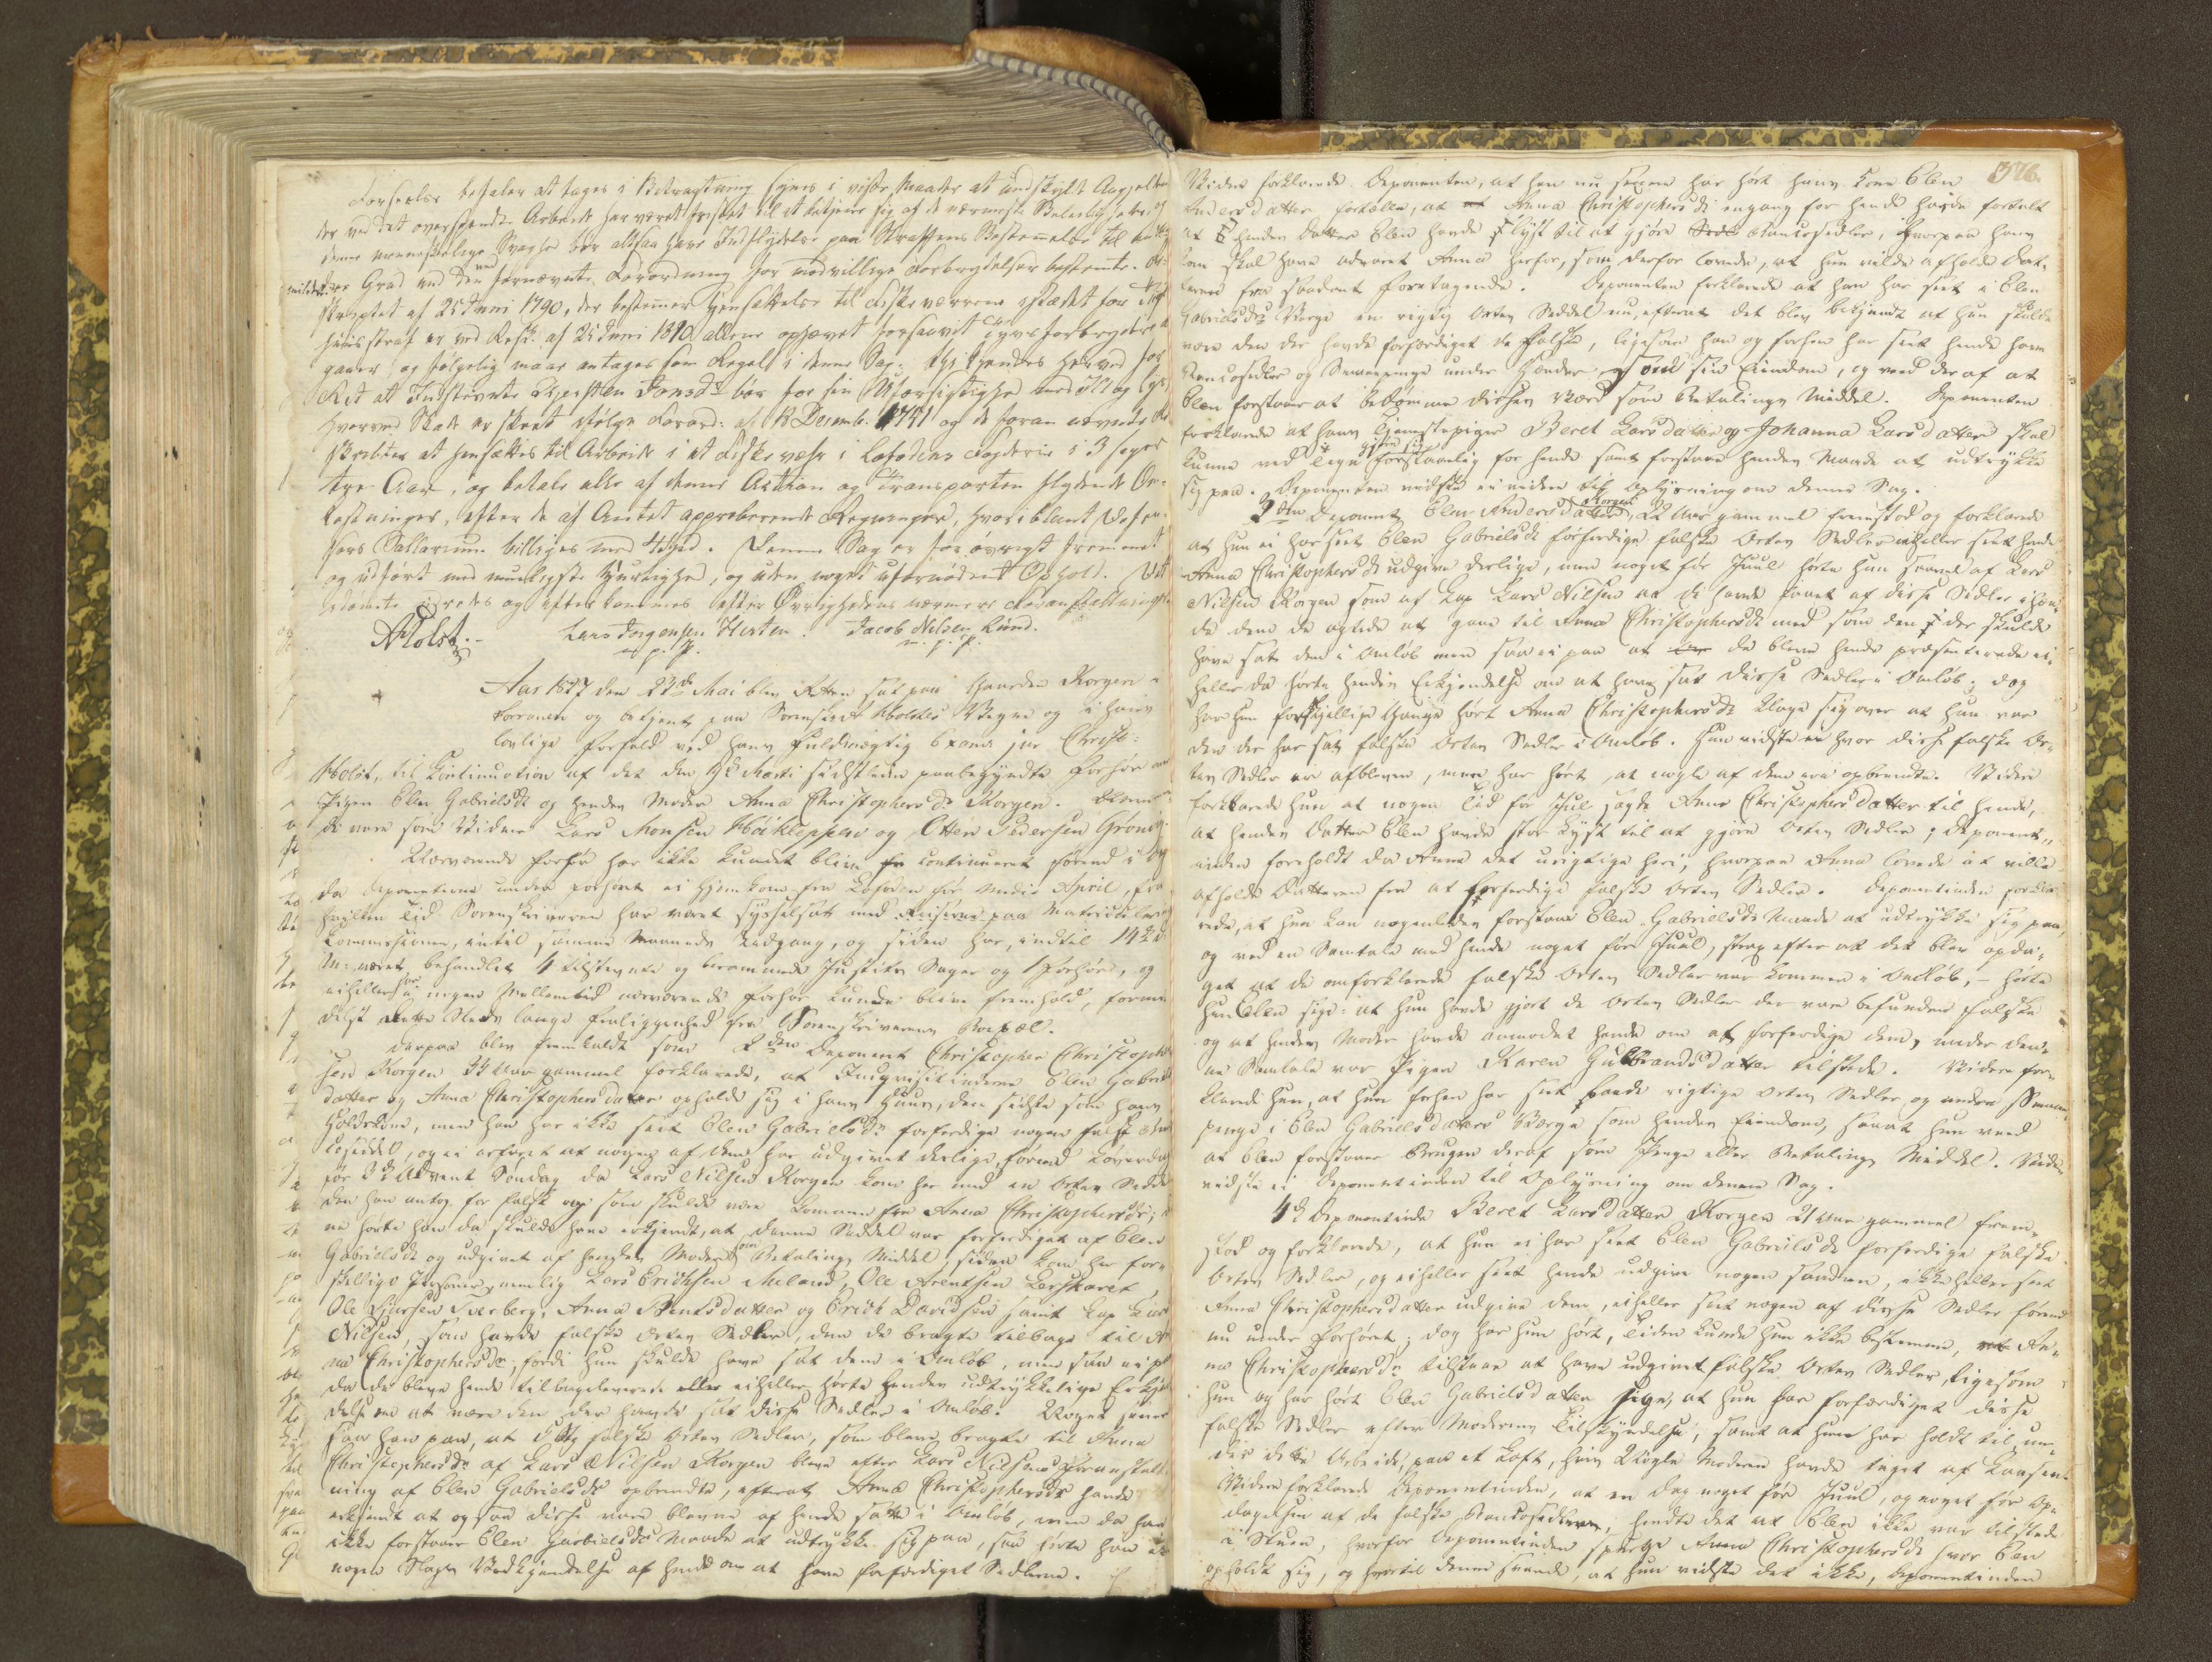 Forseelse befaler at tages i Betragtning synes i visse Maader at undskylde
der ved det overspændte Arbeide har været fristet til at betjene sig af de nærmeste og
denne menneskelige Svaghed bør altsaa have Indflydelse paa Straffens Bestemmelse til
mildere Grad end den ved fornævnte Forordning for modvillige Forbrydelser bestemte.
skriptet af 25 Juni 1790, der bestemmer Hensættelse til Fiskeværene istedet for
huusstraf er ved Resk: af 25 Juni 1810 allene ophævet forsaavidt
ganer og følgelig maae antages som Regel i denne Sag; thi kjendes herved for
Ret at Indstevnte Kjersten Jonsd: bør for sin Uforsigtighed med Ild og Lys
hvorved Skade er skeet ifølge Forord: af 18 Decemb. 1741 og de foran nævnte
skripter at hensættes til Arbeide i et Fiskevær i Lofodens Fogderie i 3 sexer
tive Aar, og betale alle af denne Action og Transporten flydende Om-
kostninger, efter de af Amtet approberende Regninger, hvoriblandt Defen-
sors Sallarium billiges med 4 Spd. Denne Sag er for øvrigt fremmet
og udført med mueligste Hurtighed, og uden noget ufornødent Ophold. Det
Idømte udredes og efterkommes efter Øvrighedens nærmere Foranstaltning
AHolst. Lars Jorgensen Hesten. Jacob Nilsen Lund.
m. p. P. m. p. P.
Aar 1827 den 23de Mai blev Retten sat paa Gaarden Korgen i
Korgen og betjent paa Sorenskriver Holst's Vegne og i hans
lovlige Forfald ved hans Fuldmægtig Exam: jur Christ:
Holst, til Continuation af det den Marti sidstleden paabegyndte Forhør over
Pigen Elen Gabrielsdr og hendes Moder Anna Christophersdr Korgen.
de vare som Vidner Lars Monsen Høikleppen og Otter Pedersen Grønvig
Nærværende Forhør har ikke kundet blive continueret førend i Dag
da Deponenterne under Forhøret ei hjemkom fra Lofoden før medio April, fra
hvilken Tid Sorenskriveren har været sysselsat med Reiserne paa Matricul
Commissionen, indtil samme Maaneds Udgang, og siden har, indtil 14de d:
M: været behandlet 4 tilstevnte og berammede Justits Sager og 1 Forhør, og
eiheller har i nogen Mellemtid nærværende Forhør kunde blive fremhold, forme
delst dette Steds lange Fraliggenhed fra Sorenskriverens Bopæl.
Derpaa blev fremkaldt som 2den Deponent Christopher Christopher
sen Korgen 34 Aar gammel forklarede, at Inqvisitinderne Elen Gabriels
datter og Anna Christophersdatter opholde sig i hans Huus, den sidste som hans
Holdskone, men han har ikke seet Elen Gabrielsdr forfærdige nogen falsk
cosedel, og ei erfaret at nogen af dem har udgivet deslige, førend Løverdag
før 3de Advent Søndag da Lars Nilsen Korgen kom her med en Orten Seddel
den han antog for falsk og som skulde være kommen fra Anna Christophersdr;
ne hørte han da skulde have erkjendt, at denne Seddel var forfærdiget af Elen
Gabrielsdr og udgivet af hendes Moder som Betalings Middel, siden kom her for-
skjellige Personer, nemlig Lars Erichsen Meland, Ole Arentsen Leerskaret
Ole Sjursen Sverberg, Anna Bentsdatter og Erich Davidsen samt Lap Lars
Nilsen, som havde falske Orten Sedler, dem de bragte tilbage til An
na Christophersdr, fordi hun skulde have sat dem i Omløb, men saa ei paa
da de bleve hende tilbageleverede eller eiheller hørte hendes udtrykkelige Erkjen
delse om at være den der havde sat disse Sedler i Omløb. Noget senere
saae han paa, at 5 stk falske Orten Sedler, som bleve bragte til Anna
Christophersdr af Lars Nilsen Korgen bleve efter Lars Nilsens Foranstalt
ning af Elen Gabrielsdr opbrendte, efterat Anna Christophersdr havde
erkjendt at ogsaa disse vare blevne af hende satte i Omløb, men da han
ikke forstaaer Elen Gabrielsdrs Maade at udtrykke sig paa, saa hørte han ei
nogen Slags Vedkjendelse af hende om at have forfærdiget Sedlerne.
376.
Videre forklarede Deponenten, at han nu senere har hørt hans Kone Elen
Andersdatter fortælle, at Anna Christophersdr engang for hende havde fortalt
at hendes Datter Elen havde Lyst til at gjøre Bancosedler, hvorpaa hans
Kone skal have advaret Anna herfor, som derfor lovede, at hun vilde afholde Dat-
teren fra saadant Foretagende. Deponenten forklarede at han har seet i Elen
Gabrielsdrs Værge en rigtig Orten Seddel nu, efterat det blev bekjendt at hun skulde
være den der havde forfærdiget de falske, ligesom han og forhen har seet hende have
Bancosedler og Smaapenge under Hænder, som sin Eiendom, og veed deraf at
Elen forstaaer at bedømme disses Værd som Betalings Middel. Deponenten
forklarede at hans Tjenestepiger Beret Larsdatter og Johanna Larsdatter skal
kunne ved Tegn gjøre sig forstaaelig for hende samt forstaae hendes Maade at udtrykke
sig paa. Deponenten vidste ei videre til Oplysning om denne Sag.
3die Deponent Elen Andersdatter Korgen, 22 Aar gammel fremstod og forklarede
at hun ei har seet Elen Gabrielsdr forfærdige falske Orten Sedler eiheller seet hende
Anna Christophersdr udgive deslige, men noget før Juul hørte hun saavel af Lars
Nilsen Korgen som af Lap Lars Nilsen at de havde faaet af disse Sedler i Hæn-
de dem de agtede at gaae til Anna Christophersdr med som den der skulde
have sat dem i Omløb men saae ei paa at de bleve hende præsenterede ei-
heller da hørte hendes Erkjendelse om at have sat disse Sedler i Omløb; dog
har hun forskjellige Gange hørt Anna Christophersdr klage sig over at hun var
den der har sat falske Orten Sedler i Omløb. Hun vidste ei hvor disse falske Or-
ten Sedler ere afblevne, men har hørt, at nogle af dem ere opbrendte. Videre
forklarede hun at nogen Tid før Jul sagde Anna Christophersdatter til hende,
at hendes Datter Elen havde stor Lyst til at gjøre Orten Sedler; Deponent-
inden foreholdt da Anna det urigtige heri, hvorpaa Anna lovede at ville
afholde Datteren fra at forfærdige falske Orten Sedler. Deponentinden forkla-
rede, at hun kan nogenledes forstaae Elen Gabrielsdrs Maade at udtrykke sig paa,
og ved en Samtale med hende noget før Juul, strax efter at det blev opda-
get at de omforklarede falske Orten Sedler var kommen i Omløb, - hørte
hun Elen sige: at hun havde gjort de Orten Sedler der vare befundne falske
og at hendes Moder havde anmodet hende om at forfærdige dem, under den-
ne Samtale var Pigen Karen Gulbrandsdatter tilstede. Videre for-
klarede hun, at hun forhen har seet baade rigtige Orten Sedler og andre Smaae
penge i Elen Gabrielsdatters Værge som hendes Eiendom, samt hun veed
at Elen forstaaer Brugen deraf som Penge eller Betalings Middel. Videre
vidste ei Deponentinden til Oplysning om denne Sag.
4de Deponentinde Beret Larsdatter Korgen 21 Aar gammel frem-
stod og forklarede, at hun ei har seet Elen Gabrielsdr forfærdige falske
Orten Sedler, og eiheller seet hende udgive nogen saadan, ikke heller seet
Anna Christophersdatter udgive dem, eiheller seet nogen af disse Sedler førend
nu under Forhøret; dog har hun hørt, Tiden kunde hun ikke bestemme, An-
na Christophersdr tilstaae at have udgivet falske Orten Sedler, ligesom
hun og har hørt Elen Gabrielsdatter sige, at hun har forfærdiget disse
falske Sedler efter Moderens Tilskyndelse, samt at hun har holdt til un-
der dette Arbeide, paa et Loft, hvis Nøgle Moderen havde taget af
Videre forklarede Deponentinden, at en Dag noget før Juul, og noget før Op-
dagelsen af de falske Bancosedler, hendte det at Elen ikke var tilstede
i Stuen, hvorfor Deponentinden spurgte Anna Christophersdr hvor Elen
opholdt sig, og hvortil denne svarede, at hun vidste det ikke, Deponentinden